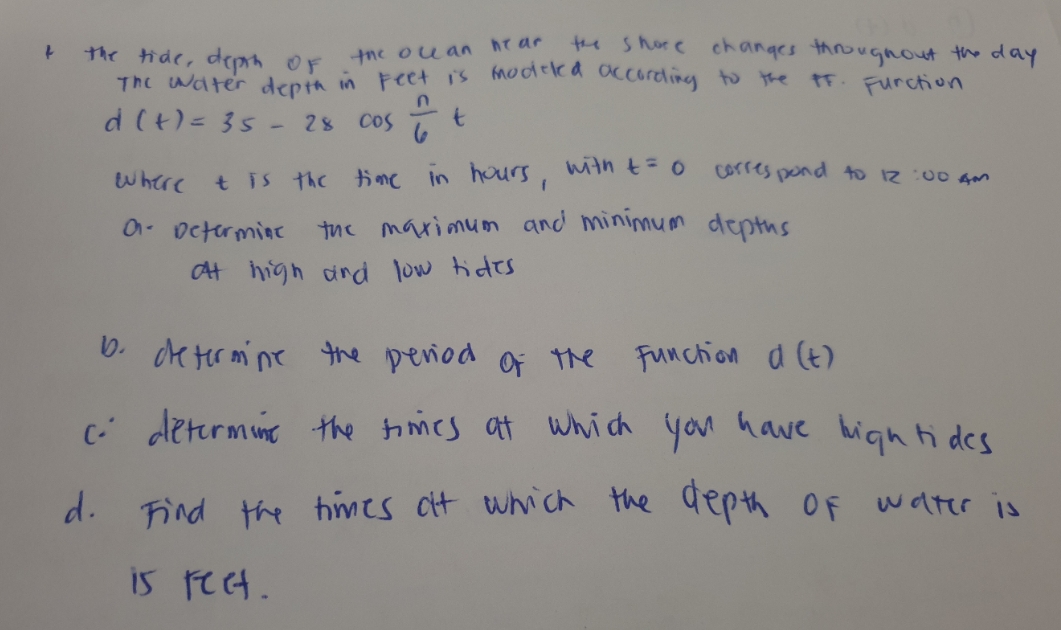 The tide, depth of the ocean near the shore changes throughout the day
The water depth in feet is modeled according to the ff. Function
d(t) = 35 - 28 cos π/6 t
where t is the time in hours, with t = 0 correspond to 12:00 AM
a. Determine the maximum and minimum depths
at high and low tides
b. determine the period of the function d(t)
c. determine the times at which you have high tides
d. Find the times at which the depth of water is
15 feet.